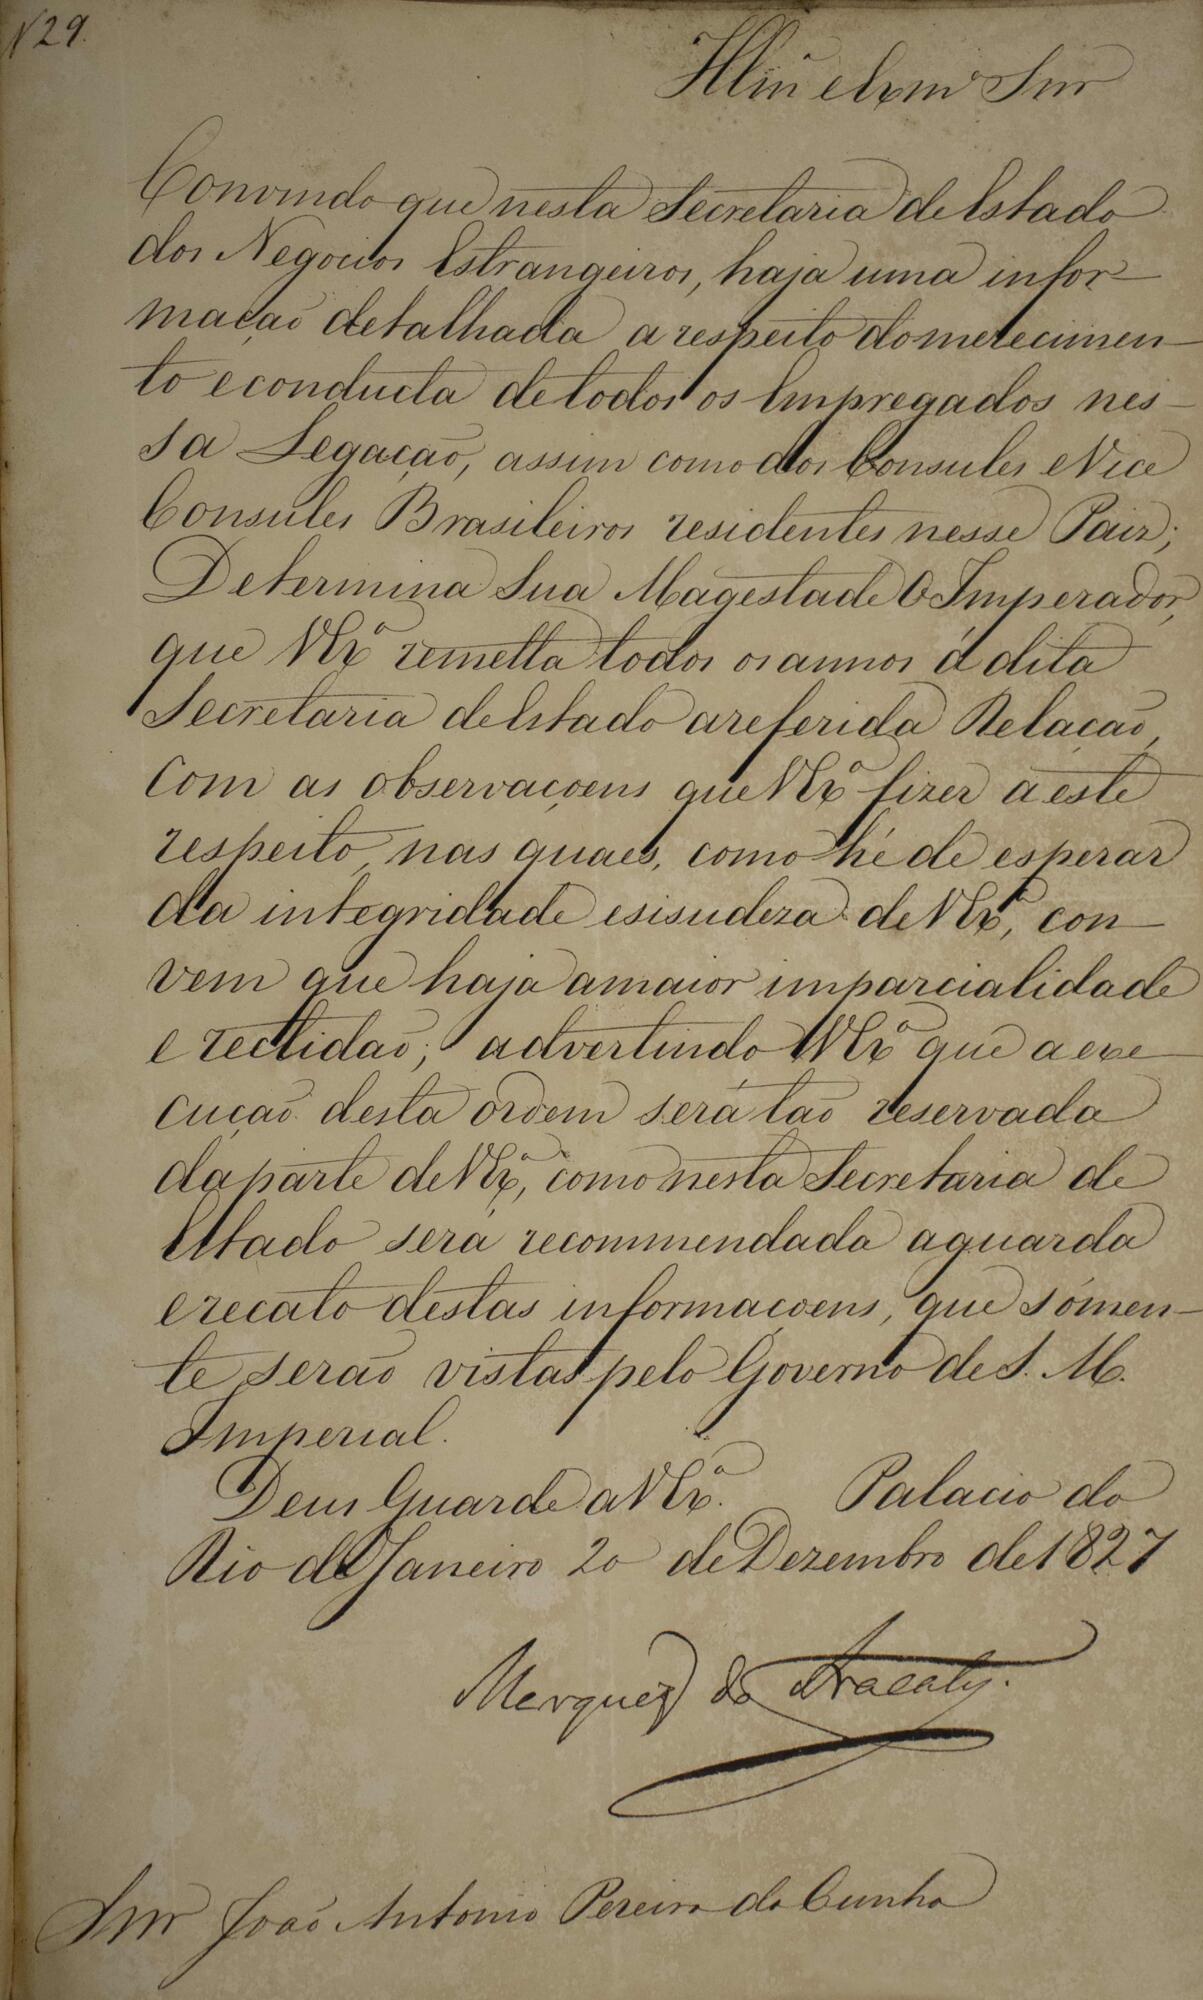 N 29.
Illmo e Exmo Snr
Convindo que nesta Secretaria de Estado
dos Negocios Estrangeiros, haja uma infor-
mação detalhada a respeito do merecimen-
to e conducta de todos os Empregados nes-
sa Legação, assim como dos Consules e Vice
Consules Brasileiros residentes nesse Paiz;
Determina Sua Magestade O Imperador,
que V Exª remetta todos os annos á dita
Secretaria de Estado a referida Relação,
com as observaçoens que V Exª fizer a este
respeito, nas quaes, como hé de esperar
da integridade e sisudeza de V Exª, con-
vem que haja a maior imparcialidade
e rectidão; advertindo V Exª que a exe-
cução desta ordem será tão reservada
da parte de V Exª, como nesta Secretaria de
Estado será recommendada a guarda
e recato destas informaçoens, que sómen-
te serão vistas pelo Governo de S. M.
Imperial.
Deus Guarde a V Exª. Palacio do
Rio de Janeiro 20 de Dezembro de 1827
Marquez do Aracaty.
Snr João Antonio Pereira da Cunha